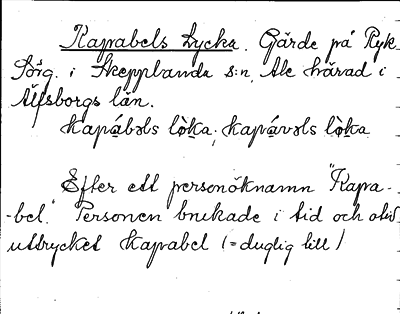 Kapabels Lycka. Gärde på Ryk
i Skepplanda s:n, Ale härad i
Älfsborgs län.
kapábəls lòka; kapávəls lòka
Efter ett personöknamn "Kapa-
-bel". Personen brukade i tid och otid
uttrycket kapabel (= duglig till)